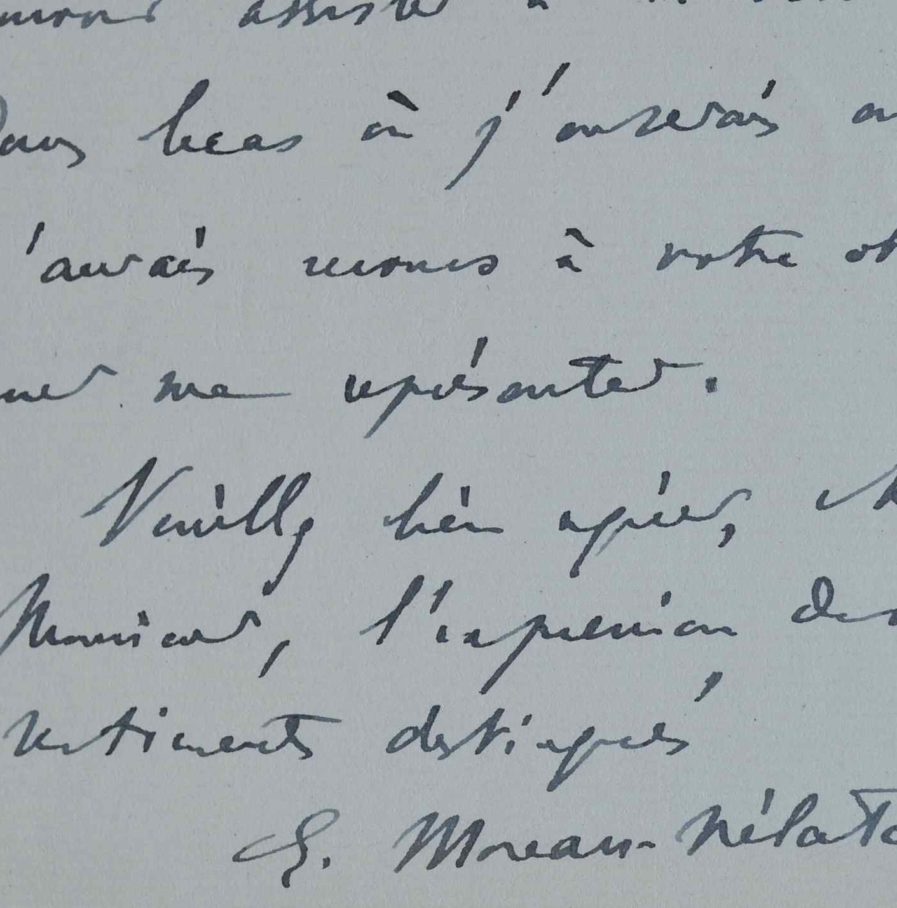 assister à
cas où j'aurais
'aurais recours à votre ob
me représenter.
Veuillez bien agréer, 
Monsieur, l'expression des
sentiments distingués
E. Moreau-Nélato